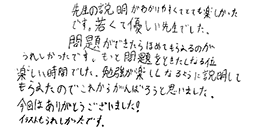 先生の説明がわかりやすくてとても楽しかった
です。若くて優しい先生でした。
問題ができたらほめてもらえるのが
うれしかったです。もっと問題をときたくなる位
楽しい時間でした。勉強が楽しくなるように説明して
もらえたのでこれからがんばろうと思いました。
今回はありがとうございました!
イラストもうれしかったです。